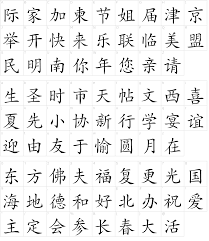 际家加柬节姐届津京
举开快来乐联临美盟
民明南你年您亲请
生圣时市天帖文西喜
夏先小协新行学宴谊
迎由友于愉圆月在
东方佛夫福复更光国
海地德和好北办祝爱
主定会参长春大活